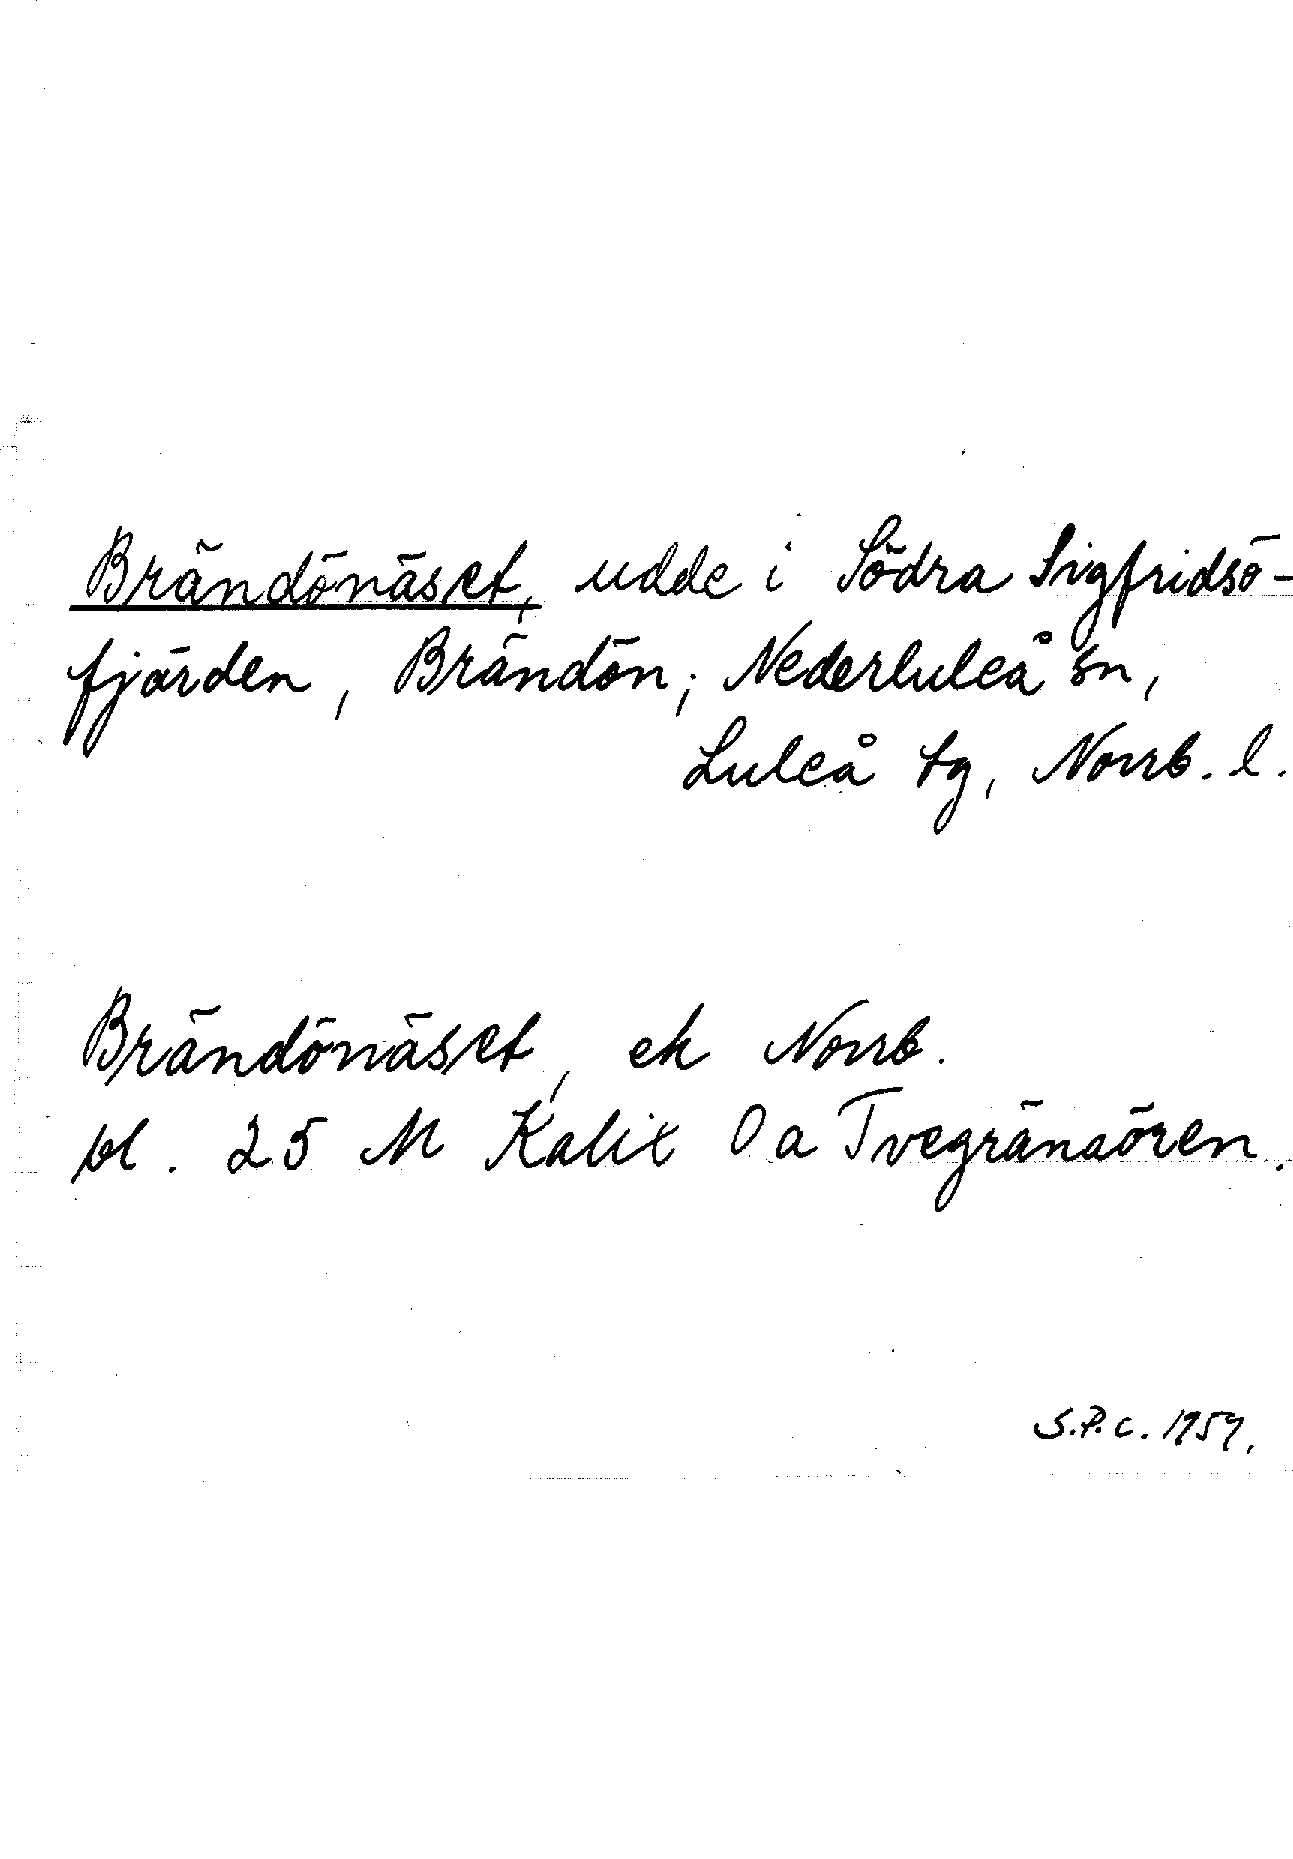 Brändönäset, udde i Södra Sigfridsö-
fjärden, Brändön, Nederluleå sn,
Luleå tg, Norrb. l.
Brändönäset, ek Norrb.
bl. 25 M Kalix O a Tvegränaören.
S.P.C. 1959.